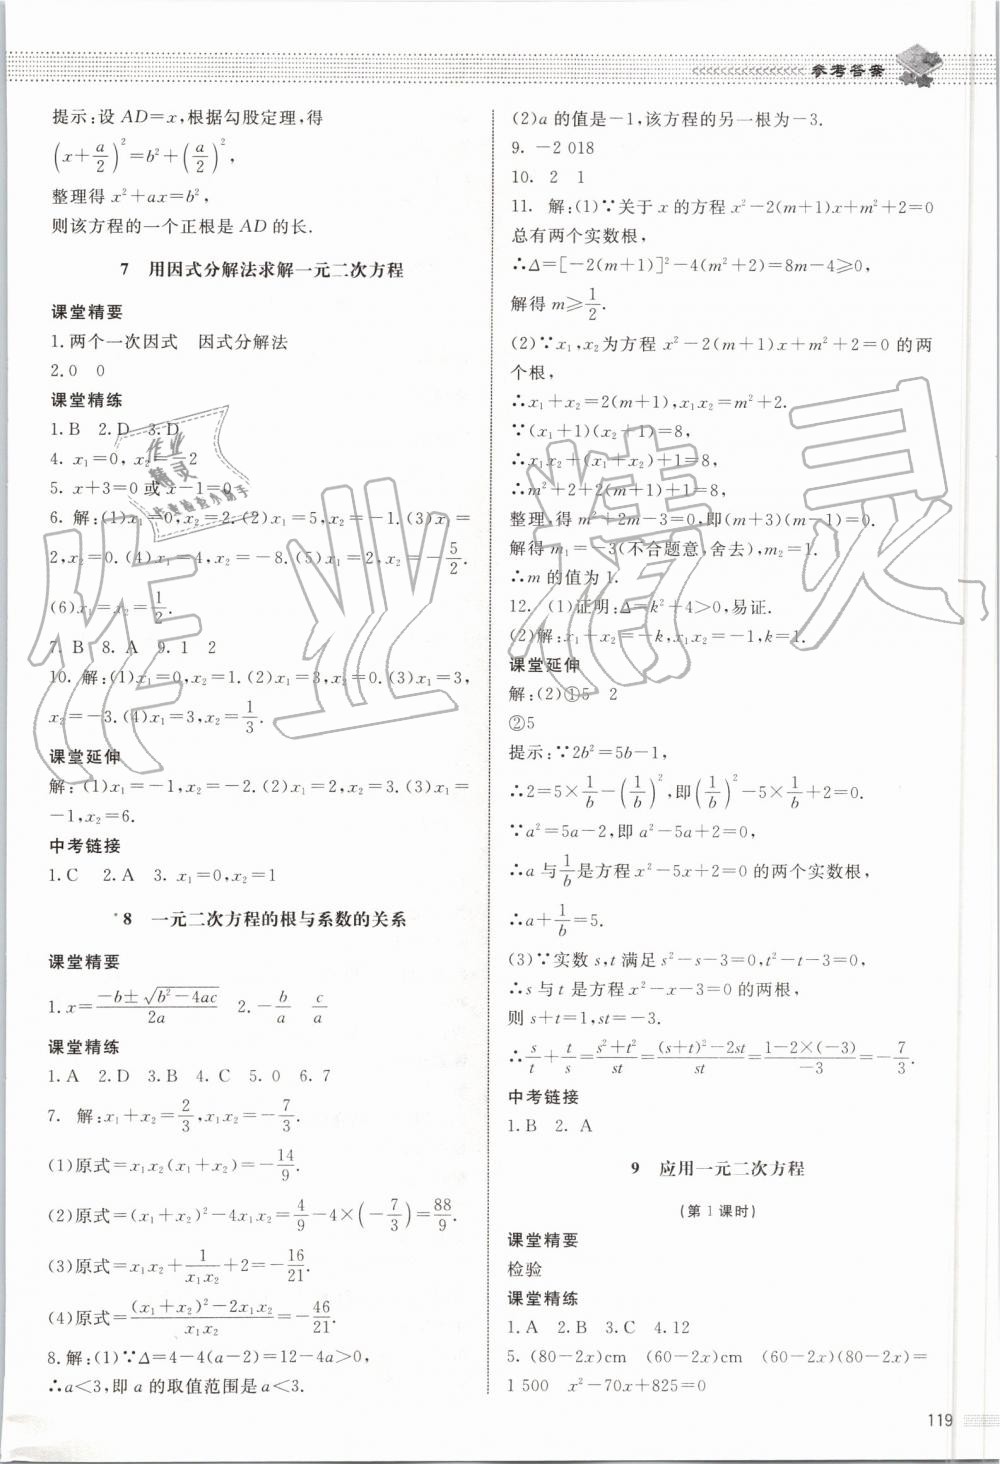 参考答案
提示:设 AD=x,根据勾股定理,得
(x+a/2)²=b²+(a/2)²,
整理得 x²+ax=b²,
则该方程的一个正根是 AD 的长.
7 用因式分解法求解一元二次方程
课堂精要
1.两个一次因式 因式分解法
2.0 0
课堂精练
1.B 2.D 3.D
4. x₁=0, x₂=-2
5. x+3=0 或 x-1=0
6. 解:(1)x₁=0,x₂=2.(2)x₁=5,x₂=-1.(3)x₁=
2,x₂=0.(4)x₁=4,x₂=-8.(5)x₁=2,x₂=-5/2.
(6)x₁=x₂=1/2.
7. B 8. A 9. 1 2
10. 解:(1)x₁=0,x₂=1.(2)x₁=3,x₂=0.(3)x₁=3,
x₂=-3.(4)x₁=3,x₂=1/3.
课堂延伸
解:(1)x₁=-1,x₂=-2.(2)x₁=2,x₂=3.(3)x₁=
-1,x₂=6.
中考链接
1.C 2.A 3. x₁=0,x₂=1
8 一元二次方程的根与系数的关系
课堂精要
1.x=(-b±√(b²-4ac))/2a 2.-b/a c/a
课堂精练
1.A 2.D 3.B 4.C 5.0 6.7
7. 解:x₁+x₂=2/3,x₁x₂=-7/3.
(1)原式=x₁x₂(x₁+x₂)=-14/9.
(2)原式=(x₁+x₂)²-4x₁x₂=4/9-4×(-7/3)=88/9.
(3)原式=x₁x₂+1/(x₁x₂)+2=-16/21.
(4)原式=((x₁+x₂)²-2x₁x₂)/(x₁x₂)=-46/21.
8.解:(1)∵Δ=4-4(a-2)=12-4a>0,
∴a<3,即 a 的取值范围是 a<3.
(2)a 的值是-1,该方程的另一根为-3.
9. -2 018
10. 2 1
11. 解:(1)∵关于 x 的方程 x²-2(m+1)x+m²+2=0
总有两个实数根,
∴Δ=[-2(m+1)]²-4(m²+2)=8m-4≥0,
解得 m≥1/2.
(2)∵x₁,x₂为方程 x²-2(m+1)x+m²+2=0 的两
个根,
∴x₁+x₂=2(m+1),x₁x₂=m²+2.
∵(x₁+1)(x₂+1)=8,
∴x₁x₂+(x₁+x₂)+1=8,
∴m²+2+2(m+1)+1=8,
整理,得 m²+2m-3=0,即(m+3)(m-1)=0.
解得 m₁=-3(不合题意,舍去),m₂=1.
∴m 的值为 1.
12. (1)证明:Δ=k²+4>0,易证.
(2)解:x₁+x₂=-k,x₁x₂=-1,k=1.
课堂延伸
解:(2)①5 2
②5
提示:∵2b²=5b-1,
∴2=5×1/b-(1/b)²,即(1/b)²-5×1/b+2=0.
∵a²=5a-2,即 a²-5a+2=0,
∴a 与1/b是方程 x²-5x+2=0 的两个实数根,
∴a+1/b=5.
(3)∵实数 s,t 满足 s²-s-3=0,t²-t-3=0,
∴s 与 t 是方程 x²-x-3=0 的两根,
则 s+t=1,st=-3.
∴s/t+t/s=(s²+t²)/st=((s+t)²-2st)/st=(1-2×(-3))/-3=-7/3.
中考链接
1.B 2. A
9 应用一元二次方程
(第 1 课时)
课堂精要
检验
课堂精练
1.A 2.B 3.C 4.12
5. (80-2x)cm (60-2x)cm (60-2x)(80-2x)=
1 500 x²-70x+825=0
119
作业精灵